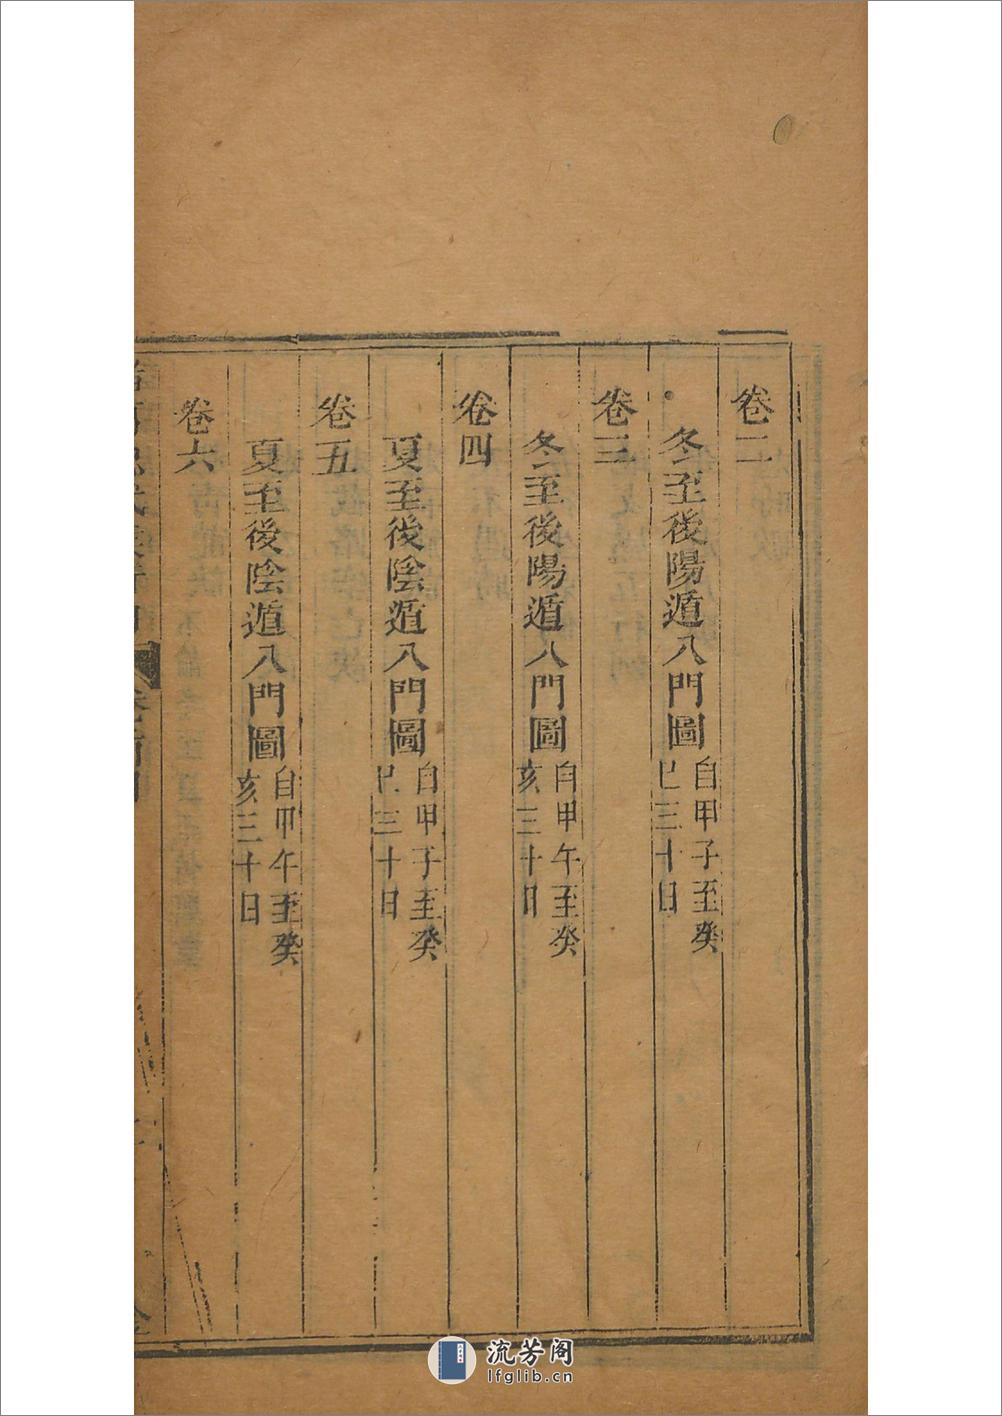 卷二
冬至後陽遁八門圖自甲子至癸巳三十日
卷三
冬至後陽遁八門圖自甲午至癸亥三十日
卷四
夏至後陰遁八門圖自甲子至癸巳三十日
卷五
夏至後陰遁八門圖自甲午至癸亥三十日
卷六
流芳阁
lfglib.cn